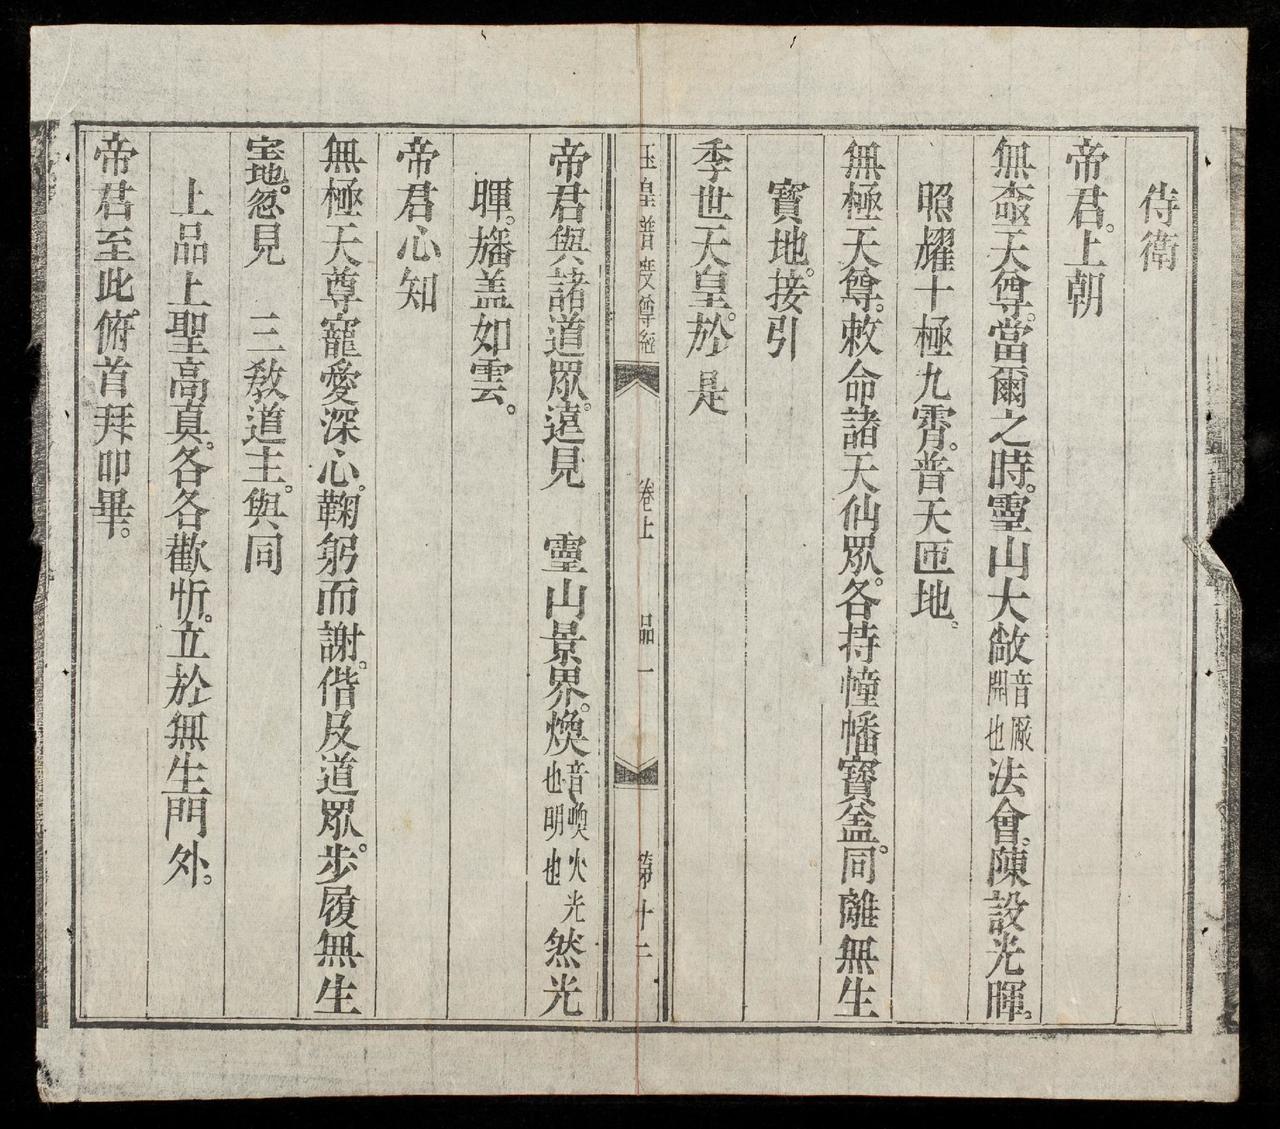 侍衛
帝君。上朝
無極天尊。當爾之時。靈山大敞音厰開也法會。陳設光暉。
照耀十極九霄。普天匝地。
無極天尊。敕命諸天仙眾。各持幢幡寶盖。同離無生
寶地。接引
季世天皇。於是
玉皇普度尊經 卷上 品一 第十二
帝君與諸道眾。遠見 靈山景界。煥音喚火光也明也然光
暉。旛盖如雲。
帝君心知
無極天尊寵愛深心。鞠躬而謝。偕及道眾。步履無生
宝地。忽見 三教道主。與同
上品上聖高真。各各歡忻。立於無生門外。
帝君至此。俯首拜叩畢。